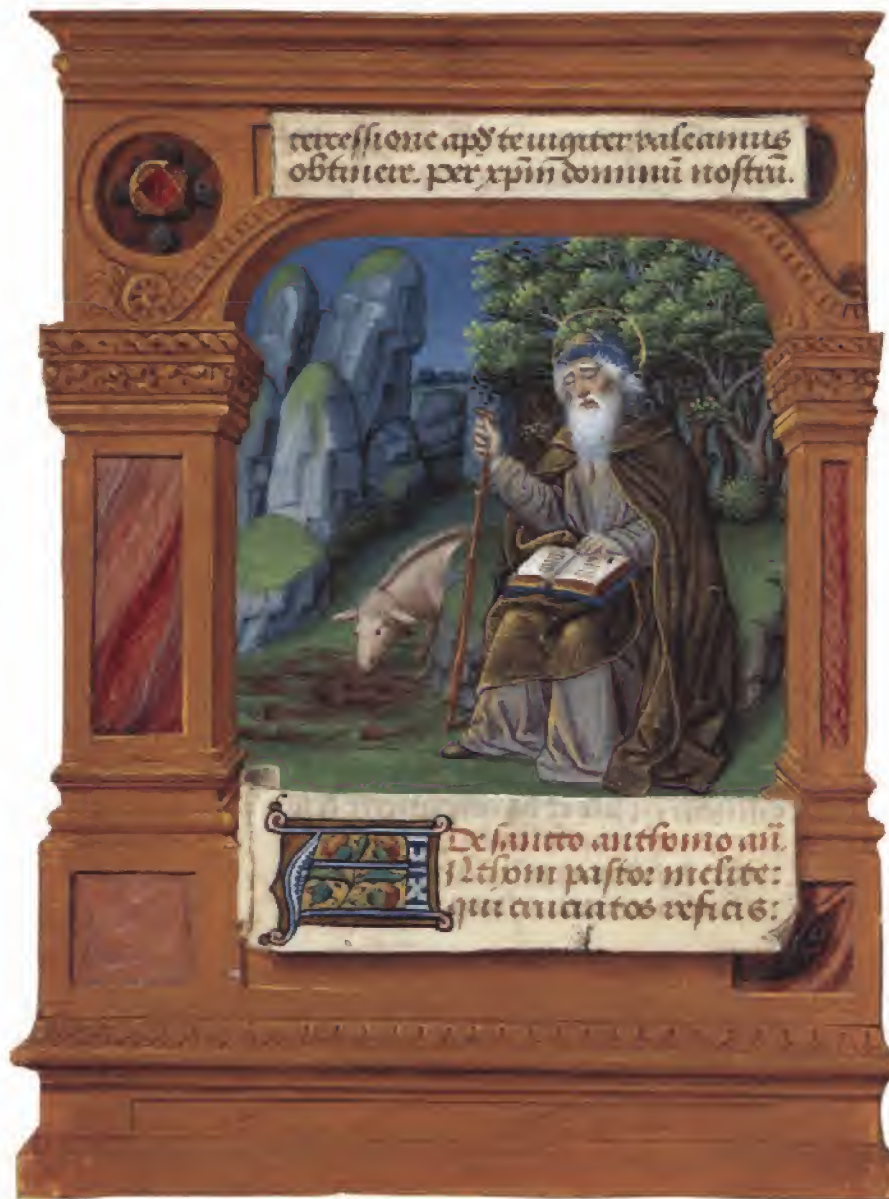 tercessione apđ te iugiter valeamus
obtinere. Per xp̄m dominū nostrū.
De sancto anthonio añ.
ANthoni pastor inclite:
qui cruciatos reficis: